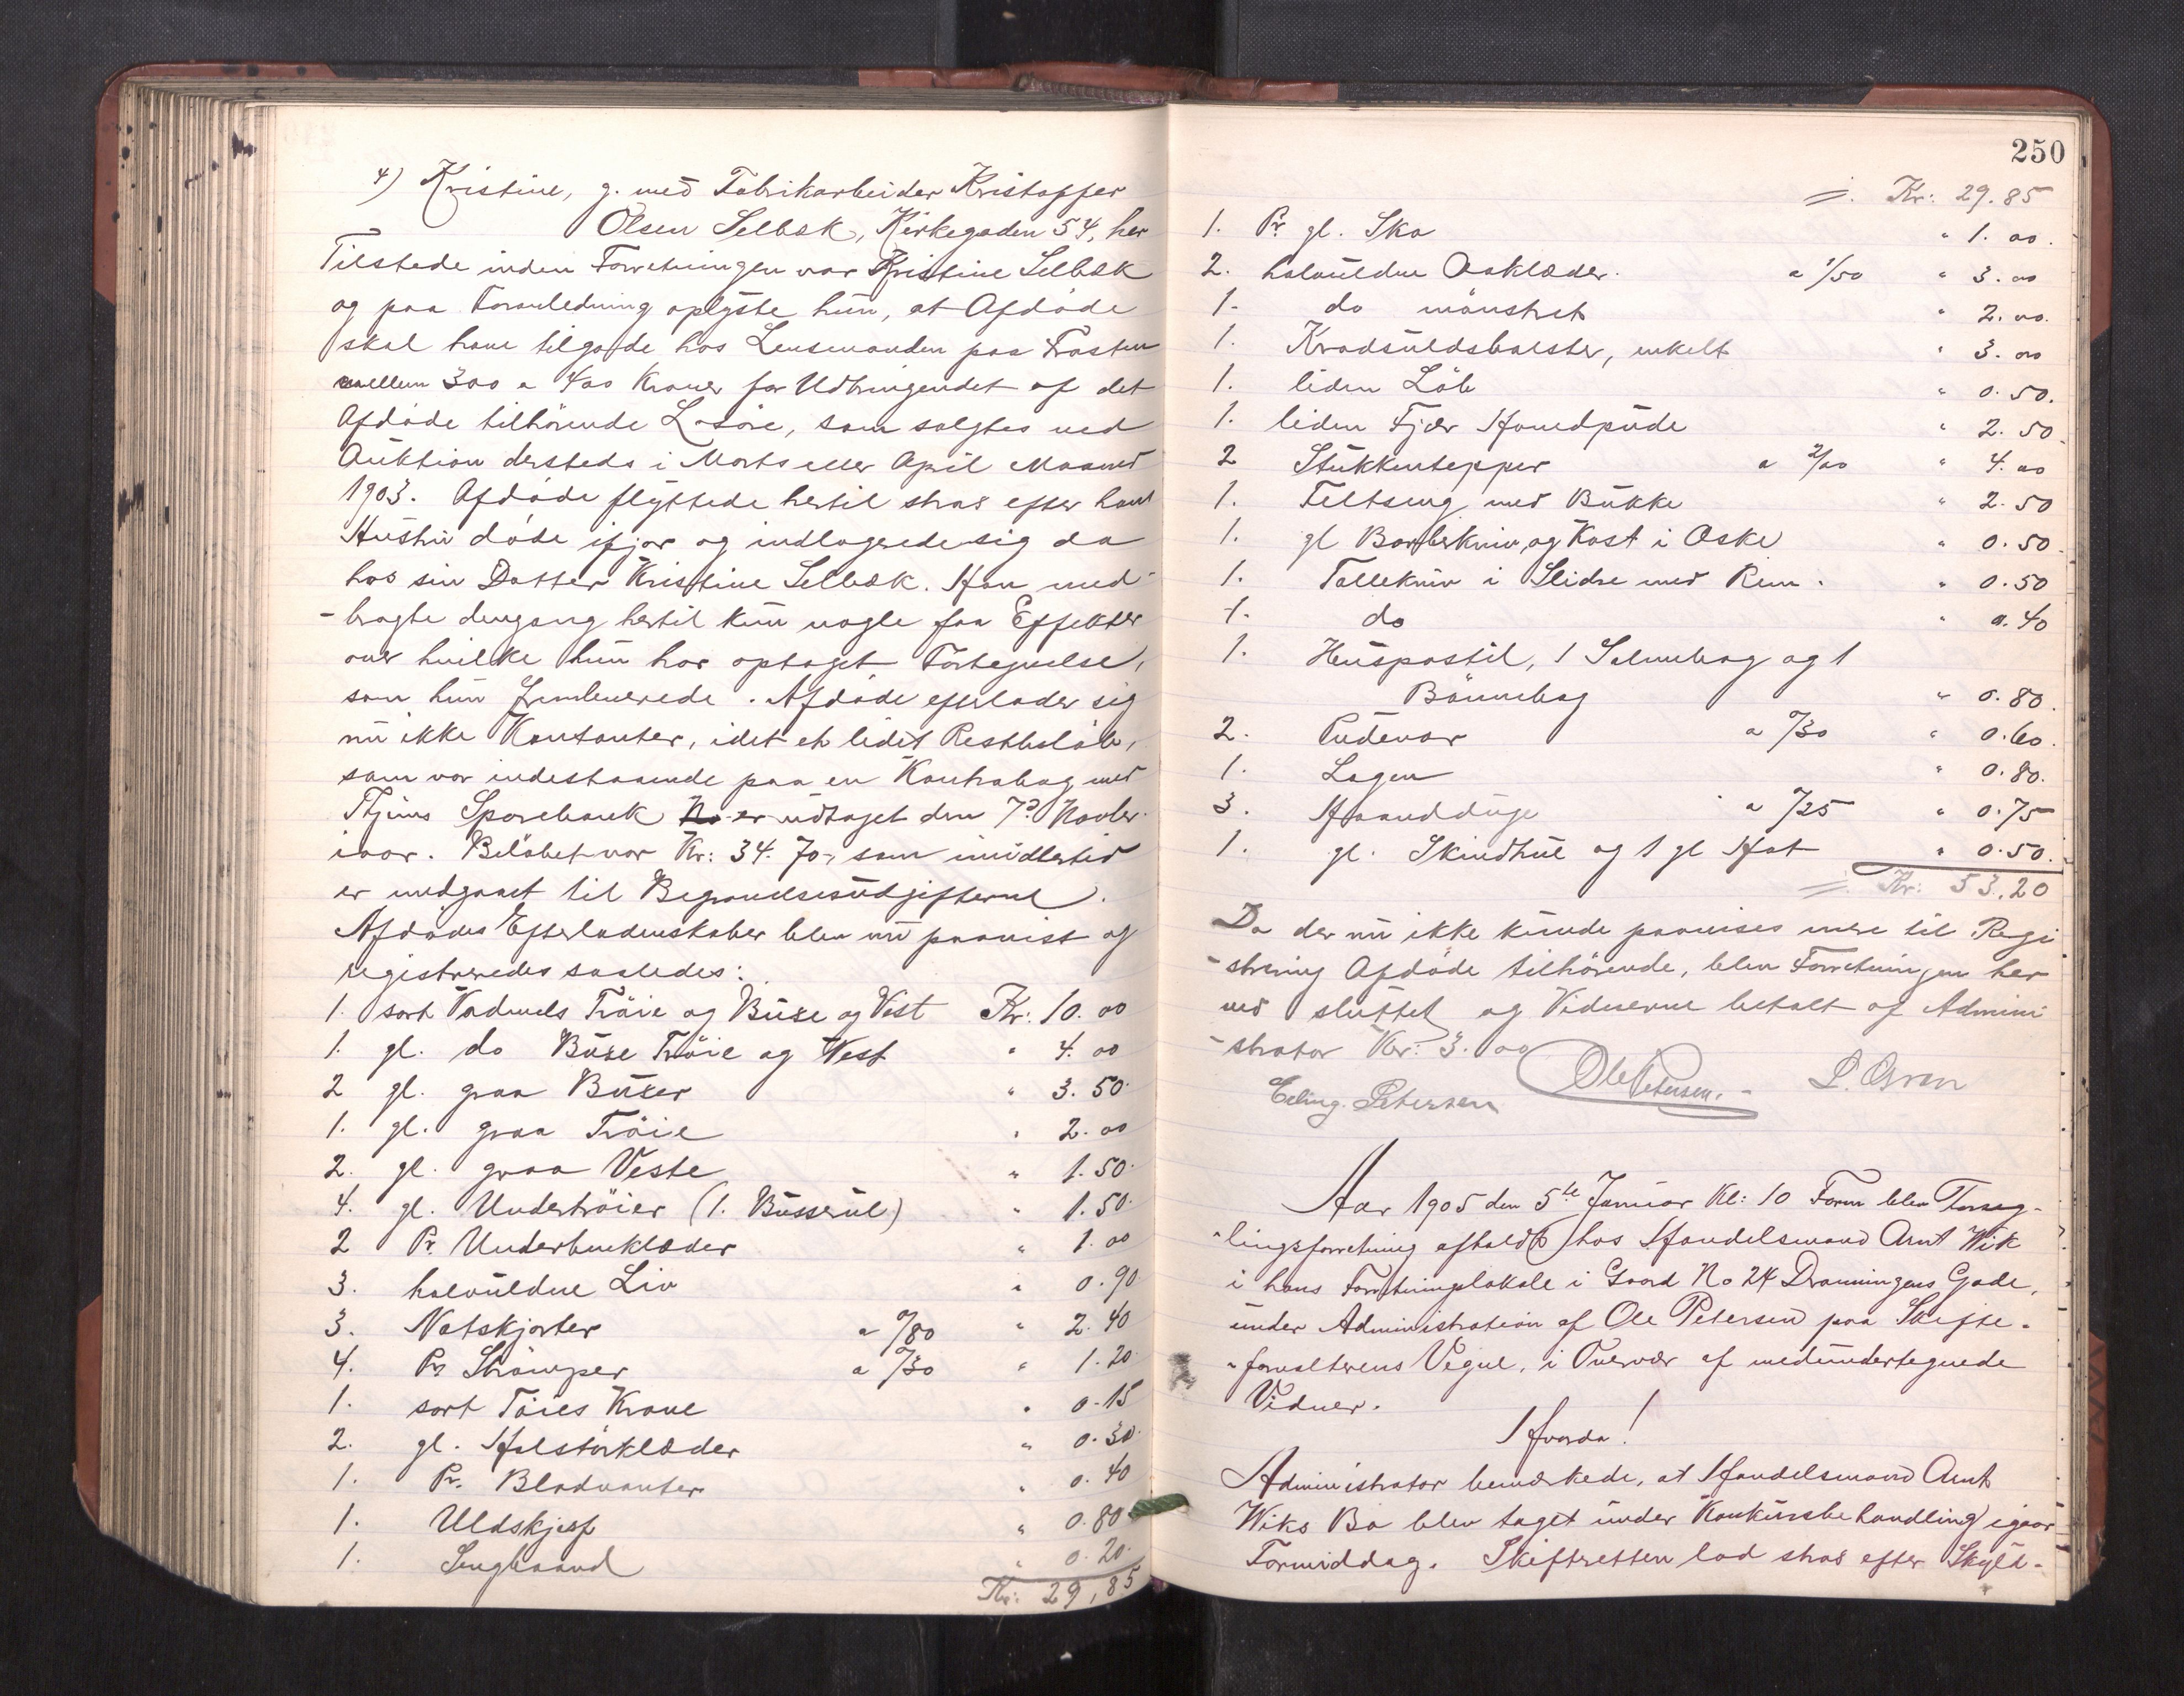 4) Kristine, g. med Fabrikarbeider Kristoffer
Olsen Selbæk, Kirkegaden 54, her
Tilstede inden Forretningen var Kristine Selbæk
og paa Foranledning oplyste hun, at Afdøde
skal have tilgode hos Lensmanden paa Frosten
mellem 300 a 400 Kroner for Udbringendet af det
Afdøde tilhørende Løsøre, som solgtes ved
Auktion dersteds i Marts eller April Maaned
1903. Afdøde flyttede hertil strax efter hans
Hustru døde ifjor og indlogerede sig da
hos sin Datter Kristine Selbæk. Han med-
-bragte dengang hertil kun nogle faa Effekter
over hvilke hun har optaget Fortegnelse,
som hun fremleverede. Afdøde efterlader sig
nu ikke Kontanter, idet et lidet Restbeløb,
som var indestaaende paa en Kontrabog med
Sparebank er udtaget den 7de Novbr.
iaar. Beløbet var Kr: 34.70, som imidlertid
er medgaaet til Begravelsesudgifterne.
Afdødes Efterladenskaber blev nu paavist og
registreredes saaledes:
1. sort Vadmels Trøie og Buxe og Vest Kr: 10.00
1. gl. do Buxe Trøie og Vest " 4.00
2 gl. graa Buxer " 3.50
1. gl. graa Trøie " 2.00
2. gl. graa Veste " 1.50
4. gl. Undertrøier (1. Busserul) " 1.50
2 Pr. Underbenklæder " 1.00
3. halvuldne Liv " 0.90
3. Natskjorter a 0/80 " 2.40
4. Pr Strømper a 0/30 " 1.20
1. sort Tøies Krave " 0.15
2. gl. Halstørklæder " 0.30
1. Pr. Bladvanter " 0.40
1. Uldskjerf " 0.80
1. Sengbaand " 0.20
Kr: 29,85
250
=. Kr: 29.85
1. Pr gl. Sko " 1.00.
2. halvuldne Aaklæder. a 1/50 " 3.00
1- do mønstret " 2.00.
1. Kradsuldsbolster, enkelt " 3.00
1. liden Løb " 0.50.
1. liden Fjær Hovedpude " 2.50.
2 Stukkentepper a 2/00 " 4.00
1. Feltseng med Bukke " 2.50
1. gl Barberkniv og Kost i Æske " 0.50.
1. Tollekniv i Slidre med Rem. " 0.50
1. do " 0.40
1. Huspostil, 1 Salmebog og 1
Bønnebog " 0.80.
2. Pudevar a 0/30 " 0.60.
1. Lagen " 0.80.
3. Haandduge a 0/25 " 0.75
1. gl. Skindhue og 1 gl Hat " 0.50.
=. Kr: 53.20
Da der nu ikke kunde paavises mere til Regi
-strering Afdøde tilhørende, blev Forretningen her
ved sluttet og Vidnerne betalt af Admini
-strator Kr: 3.00
Ole Petersen. -
Erling. Petersen
Aar 1905 den 5te Januar Kl: 10 Form blev Forseg-
-lingsforretning afholdt hos Handelsmand Arnt Wik
i hans Forretningslokale i Gaard No 24 Dronningens Gade,
under Administration af Ole Petersen paa Skifte-
-forvalterens Vegne, i Overvær af medundertegnede
Vidner.
Hvorda!
Administrator bemærkede, at Handelsmand Arnt
Wiks Bo blev taget under Konkursbehandling igaar
Formiddag. Skifteretten lod strax efter Skyld-